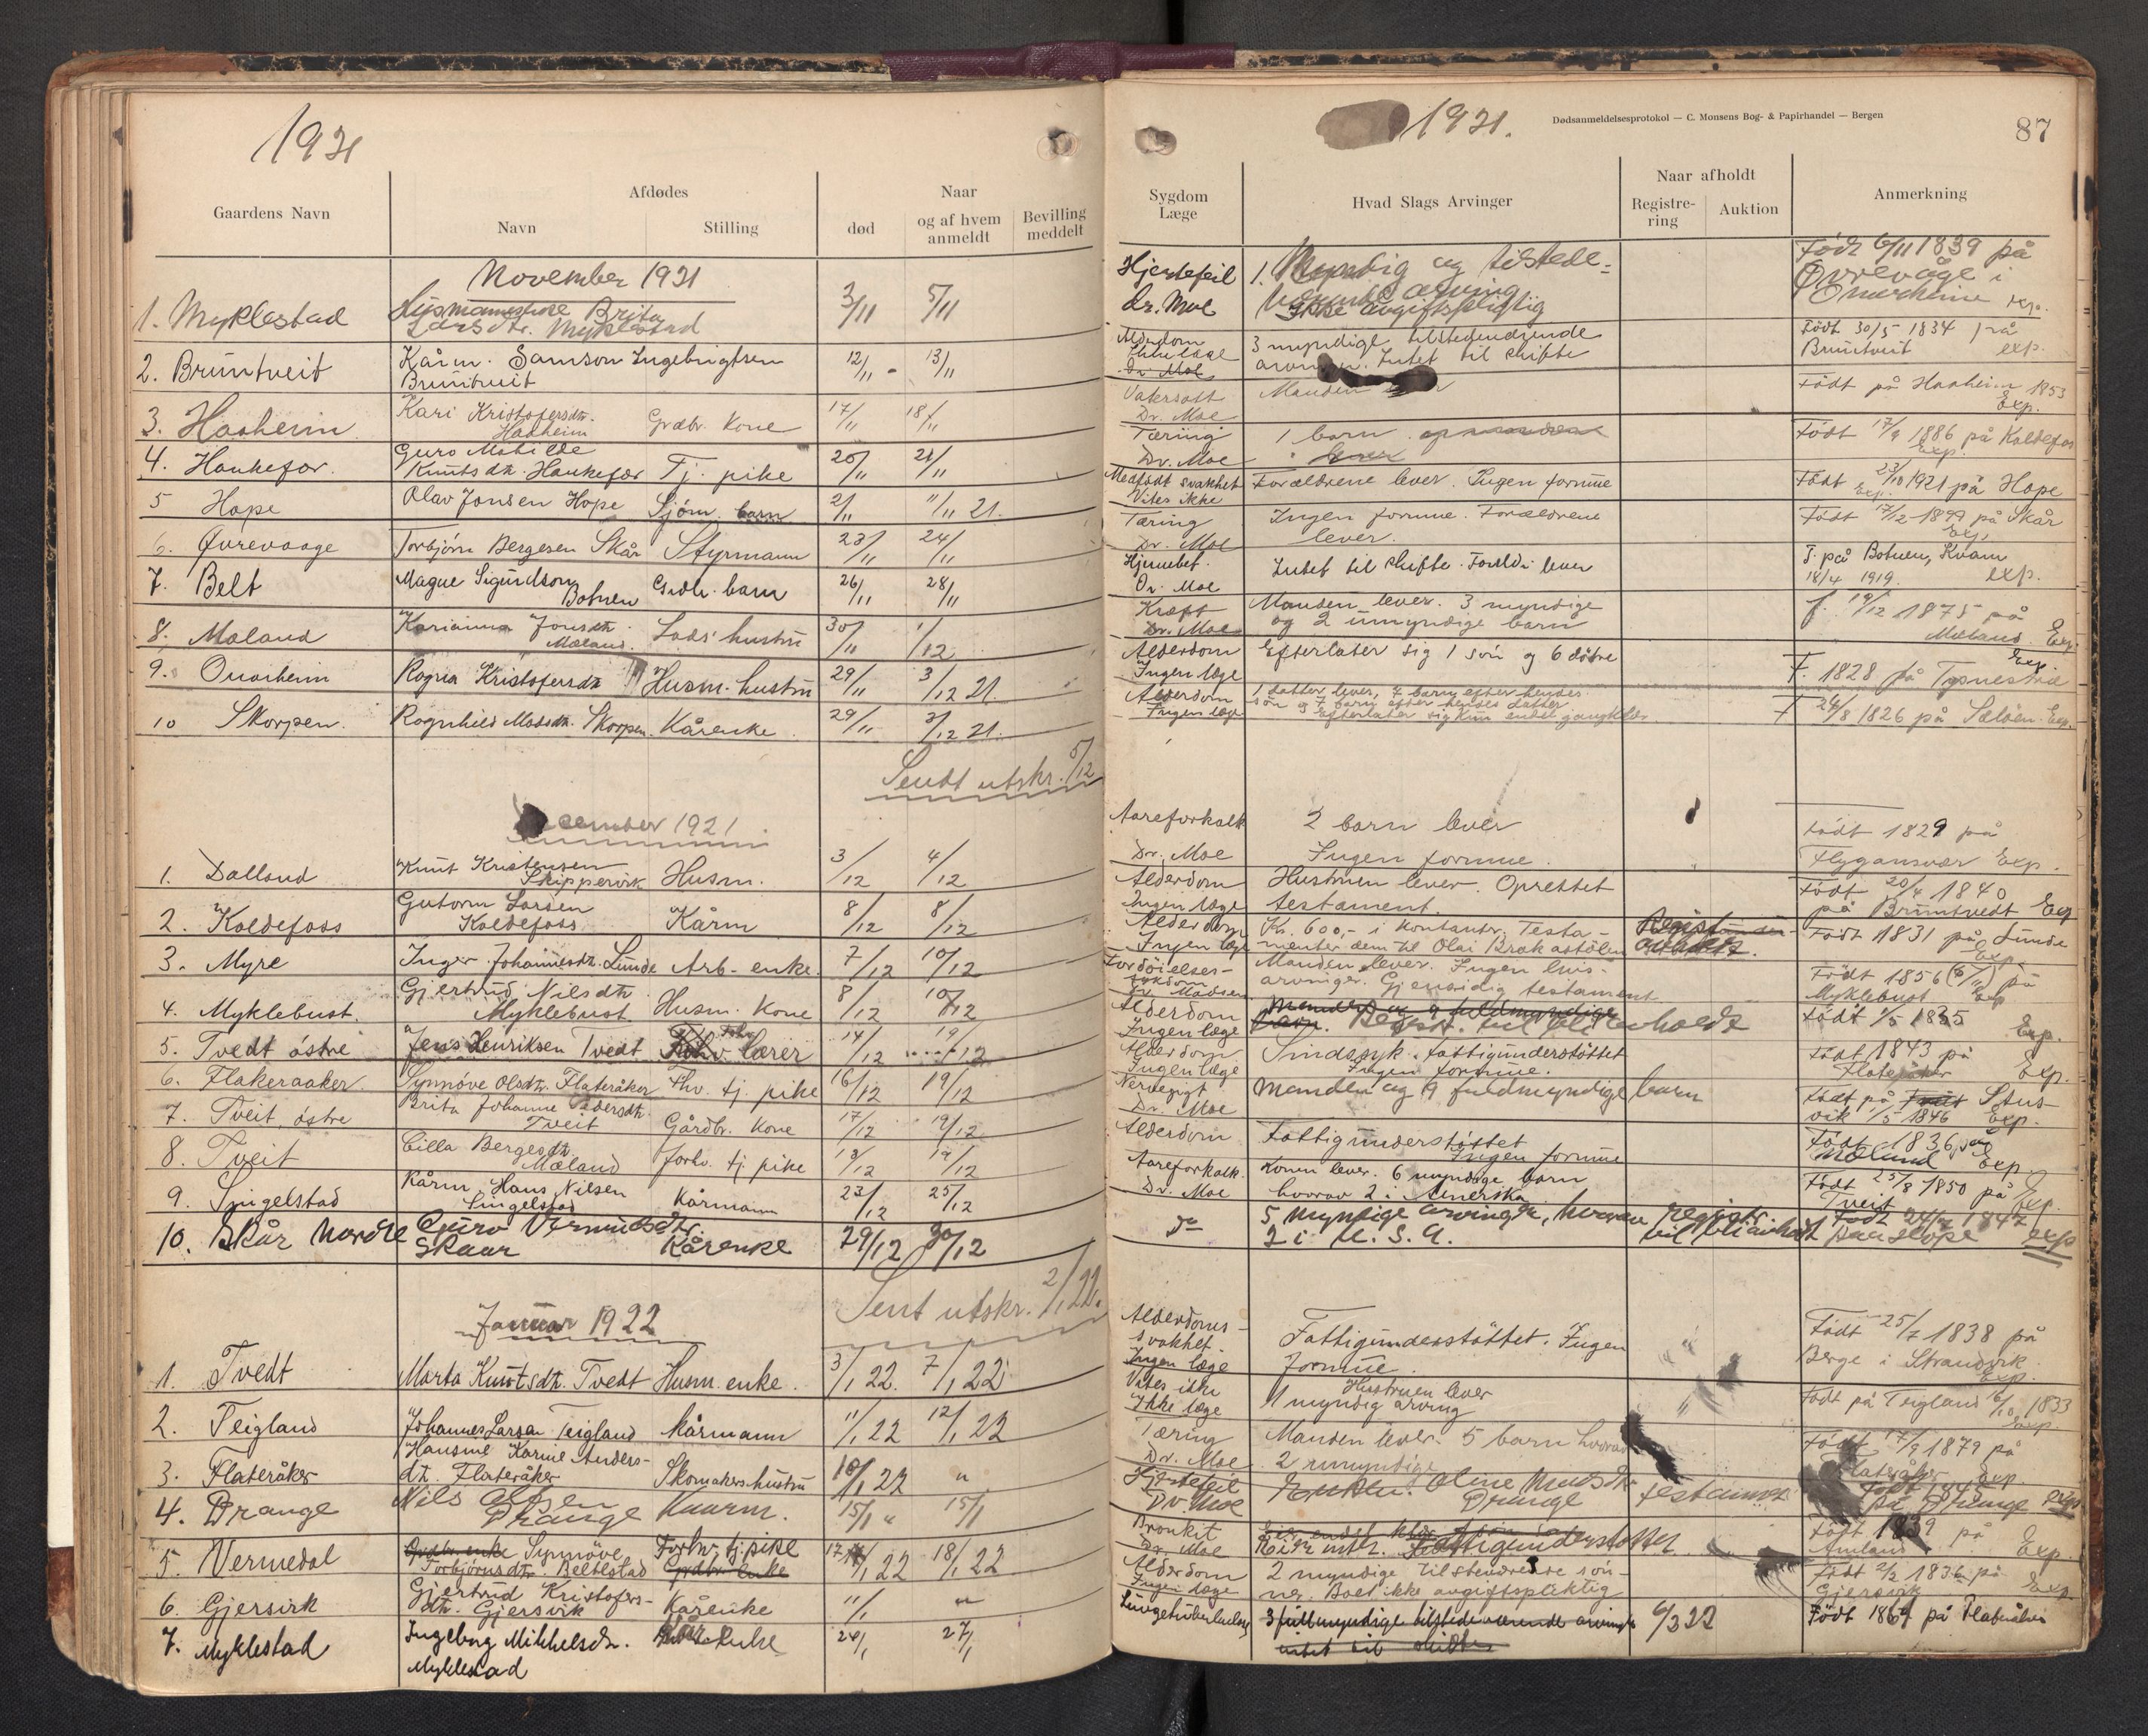 1921
Afdødes
Naar
Gaardens Navn
Navn
Stilling
død
og af hvem anmeldt
Bevilling meddelt
November 1921
1. Myklestad Husmannsenke Brita Larsdtr. Myklestad 3/11 5/11
2. Bruntveit Kårm. Samson Ingebrigtsen Bruntveit 12/11 13/11
3. Haaheim Kari Kristofersdtr. Haaheim Grdbr. Kone 17/11 18/11
4. Haukefær. Guro Matilde Knutsdtr. Haukefær Tj. pike 20/11 21/11
5 Hope Olav Jonsen Hope Sjøm. barn 2/11 11/11 21.
6. Øvrevaage Torbjørn Bergesen Skår Styrmann 23/11 24/11
7. Belt Magne Sigurdson Botnen Grdbr. barn 26/11 28/11
8. Mæland Karianna Jonsdtr. Mæland. Lods' hustru 30/11 1/12
9. Onarheim Ragna Kristofersdtr Husm. hustru 29/11 3/12 21.
10 Skorpen. Ragnhild Madsdtr. Skorpen. Kårenke. 29/11 3/12 21.
Sendt utskr. 5/12
December 1921.
1. Dalland Knut Kristensen Skippervik Husm. 3/12 4/12
2. Koldefoss Gutorm Larsen Koldefoss Kårm 8/12 8/12
3. Myre Inger Johannesdtr. Lunde Arb-enke. 7/12 10/12
4. Myklebust. Gjertrud Nilsdtr. Myklebust. Husm. Kone 8/12 10/12
5. Tvedt østre Jens Henriksen Tvedt lærer 14/12 19/12
6. Flakeraaker. Synnöve Olsdtr. Flateråker fhv. tj. pike 16/12 19/12
7. Tveit, østre Brita Johanne Tveit Gårdbr. Kone 17/12 19/12
8. Tveit Cilla Bergesdtr. Mæland forhv. tj. pike 18/12 19/12
9. Singelstad Kårm. Hans Nilsen Singelstad Kårmann 23/12 25/12
10. Skår nordre Guro Skaar Kårenke 29/12 30/12
Sent utskr. 2/1 22.
Januar 1922
1. Tvedt Marta Knutsdtr. Tvedt Husm. enke. 3/1 22. 7/1 22
2. Teigland Johannes Larsen Teigland kårmann 11/1 22 12/1 22
3. Flateråker Hansine Karine Andersdtr. Flateråker Skomakers hustru 10/1 22 "
4. Drange Nils Olsen Drange Kaarm. 15/1 " 15/1
5. Vermedal Grdbr. enke Synnöve Torbjörnsdtr. Beltestad Forhv. tj. pike Grdbr. enke 17/1 22 18/1 22
6. Gjersvik Gjertrud Kristofersdtr. Gjersvik Kårenke 11/1 "
7. Myklestad Ingeborg Mikkelsdr. Myklestad enke 24/1 27/1
1921.
Dødsanmeldelsesprotokol — C. Monsens Bog- & Papirhandel — Bergen
87
Sygdom Læge
Hvad Slags Arvinger
Naar afholdt
Registrering
Auktion
Anmerkning
Hjertefeil Dr. Moe 1. Myndig og tilstedeværende arving Ikke avgiftspligtig Født 6/11 1839 på Øvrevåge i Onarheim exp.
Alderdom Ikke læge Dr. Moe 3 myndige tilstedeværende Intet til skifte Født 30/5 1834 på Bruntveit exp.
Vatersott Dr. Moe Manden Født på Haaheim 1853 Exp.
Tæring Dr. Moe 1 barn Født 17/9 1886 på Koldefos Exp.
Medfødt svakhet Vites ikke Forældrene lever. Ingen formue Født 23/10 1921 på Hope Exp.
Tæring Dr. Moe Ingen formue. Forældrene lever. Født 17/12 1899 på Skår Exp.
Hjernebet. Dr. Moe Intet til skifte. Foreldr. lever F. på Botnen, Kvam 18/4 1919. exp.
Kræft Dr. Moe Manden lever. 3 myndige og 2 umyndige barn f. 19/12 1875 på Mæland. Exp.
Alderdom Ingen læge Efterlater sig 1 søn og 6 døtre F. 1828 på Exp.
Alderdom Ingen læge 1 datter lever, 7 barn efter hendes søn og 7 barn efter hendes datter Efterlater sig kun endel gangklær F 24/8 1826 på Sæløen. Exp.
Aareforkalk Dr. Moe 2 barn lever Ingen formue. Født 1829 på Flygansvær Exp.
Alderdom Ingen læge Hustruen lever. Oprettet testament. Født 20/4 1840 på Bruntvedt Exp
Alderdom Ingen læge Kr. 600,- i kontanter. Testamenter dem til Olai Brakastølen Født 1831 på Lunde Exp.
Fordøielses- Dr. Madsen Manden lever. Ingen livsarvinger. Gjensidig testament Født 1856 på Myklebust Exp
Alderdom Ingen læge Manden og 9 fuldmyndige barn. Registr. til blir avholdt Født 1/5 1835 Exp.
Alderdom Ingen læge Sindssyk. Fattigunderstøttet Ingen formue. Født 1843 på Flateråker Exp.
Dr. Moe Manden og 9 fuldmyndige barn Født på Stusvik 1/5 1846 Exp.
Alderdom Fattigunderstøttet Ingen formue Født 1836 på Mæland Exp.
Aareforkalk. Dr. Moe Konen lever. 6 myndige barn hvorav 2 i Amerika Født 25/8 1850 på Tveit Exp.
do 5 myndige arvinger, hvorav 2 i U. S. A. registr. vil bli avholdt Født 1847 paa Hope exp
Alderdomssvakhet. Ingen læge Fattigunderstøttet. Ingen formue. Født 25/7 1838 på Berge i Strandvik. Exp.
Vites ikke Ikke læge Hustruen lever 1 myndig arving Født på Teigland 6/10 1833 Exp.
Tæring Dr. Moe Manden lever. 5 barn hvorav 2 umyndige Født 17/9 1879 på Flateråker Exp.
Hjertefeil Dr. Moe Enken. Oline Drange testament på Drange exp.
Bronkit Dr. Moe Fattigunderstøttet Født 1839 på Exp.
Alderdom Ingen læge 2 myndige tilstedeværende sønner. Boet ikke avgiftspliktig Født 2/2 1836 på Gjersvik Exp.
Lungetuberkulose 3 fullmyndige tilstedeværende arvinger intet til skifte 6/3 22 Født 1869 på Flateråker